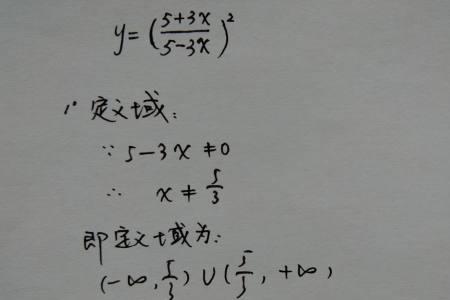 y=(5+3x/5-3x)²
1° 定义域:
∵ 5-3x≠0
∴ x≠5/3
即定义域为:
(-∞,5/3)∪(5/3,+∞)